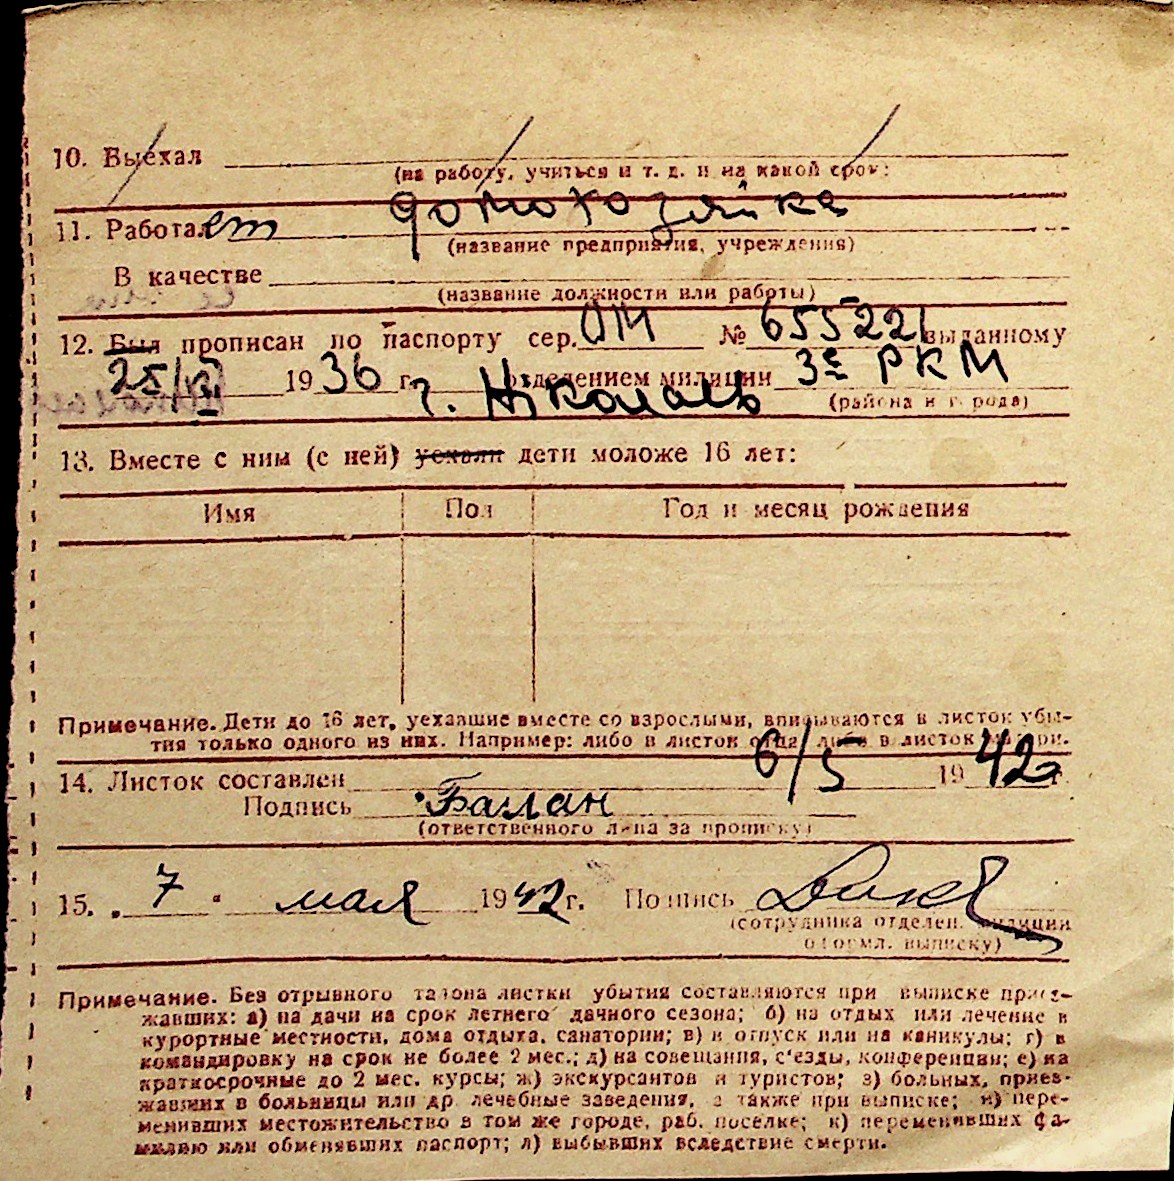 10. Выехал
(на работу, учиться и т. д. и на какой срок:
11. Работает домохозяйка
(название предприятия, учреждения)
В качестве
(название должности или работы)
12. Был прописан по паспорту сер. ОМ № 655221 выданному
25/VI 1936 г. отделением милиции 3е РКМ
г. Николаев (района и города)
13. Вместе с ним (с ней) уехали дети моложе 16 лет:
Имя Пол Год и месяц рождения
Примечание. Дети до 16 лет, уехавшие вместе со взрослыми, вписываются в листок убы-
тия только одного из них. Например: либо в листок отца либо в листок матери.
14. Листок составлен 6/5 1942 г.
Подпись Балан
(ответственного л-ца за прописку)
15. 7 мая 1942 г. Подпись
(сотрудника отделен. милиции
оформл. выписку)
Примечание. Без отрывного талона листки убытия составляются при выписке приез-
жавших: а) на дачи на срок летнего дачного сезона; б) на отдых или лечение в
курортные местности, дома отдыха, санатории; в) в отпуск или на каникулы; г) в
командировку на срок не более 2 мес.; д) на совещания, с'езды, конференции; е) на
краткосрочные до 2 мес. курсы; ж) экскурсантов и туристов; з) больных, приез-
жавших в больницы или др лечебные заведения, а также при выписке; и) пере-
менивших местожительство в том же городе, раб. поселке; к) переменивших фа-
милию или обменявших паспорт; л) выбывших вследствие смерти.